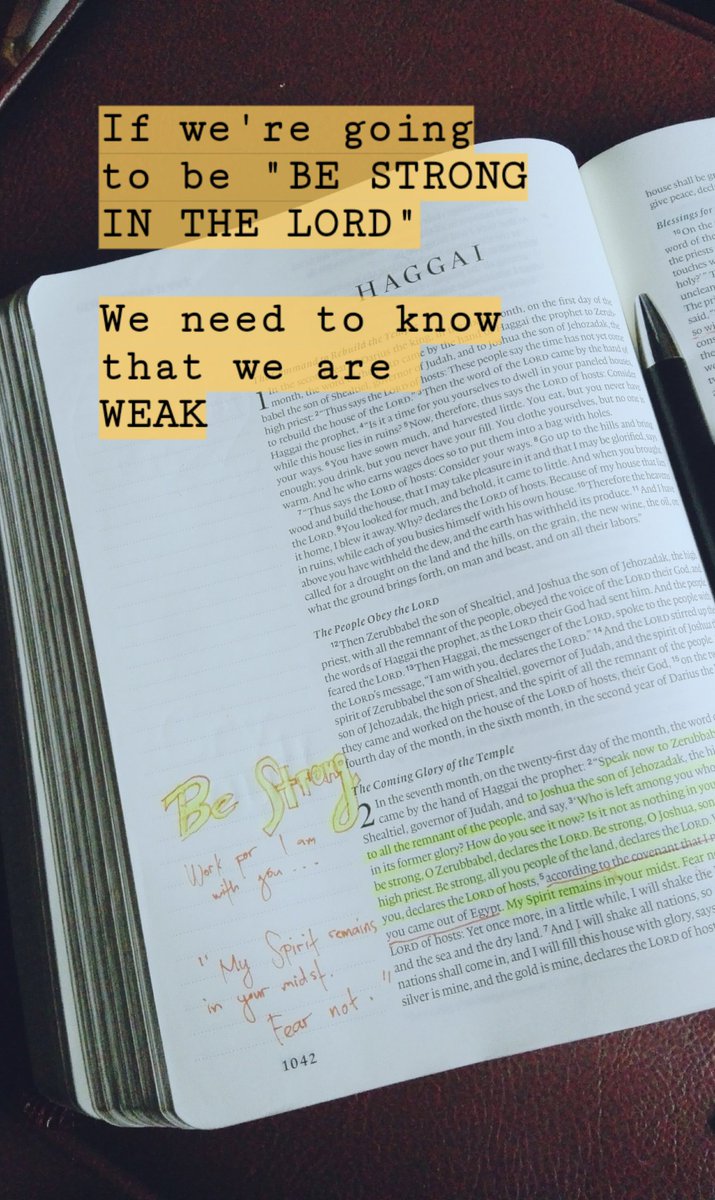 If we're going
to be "BE STRONG
IN THE LORD"
We need to know
that we are
WEAK
HAGGAI
month, on the first day of the
Haggai the prophet to Zerub-
babel the son of Shealtiel, governor of Judah, and to Joshua the son of Jehozadak, the
high priest: 2 "Thus says the LORD of hosts: These people say the time has not yet come
to rebuild the house of the LORD." 3 Then the word of the LORD came by the hand of
Haggai the prophet, 4 "Is it a time for you yourselves to dwell in your paneled houses,
while this house lies in ruins? 5 Now, therefore, thus says the LORD of hosts: Consider
your ways. 6 You have sown much, and harvested little. You eat, but you never have
enough; you drink, but you never have your fill. You clothe yourselves, but no one is
warm. And he who earns wages does so to put them into a bag with holes.
7 "Thus says the LORD of hosts: Consider your ways. 8 Go up to the hills and bring
wood and build the house, that I may take pleasure in it and that I may be glorified, says
the LORD. 9 You looked for much, and behold, it came to little. And when you brought
it home, I blew it away. Why? declares the LORD of hosts. Because of my house that lies
in ruins, while each of you busies himself with his own house. 10 Therefore the heavens
above you have withheld the dew, and the earth has withheld its produce. 11 And I have
called for a drought on the land and the hills, on the grain, the new wine, the oil, on
what the ground brings forth, on man and beast, and on all their labors."
The People Obey the LORD
12 Then Zerubbabel the son of Shealtiel, and Joshua the son of Jehozadak, the high
priest, with all the remnant of the people, obeyed the voice of the LORD their God, and
the words of Haggai the prophet, as the LORD their God had sent him. And the people
feared the LORD. 13 Then Haggai, the messenger of the LORD, spoke to the people with
the LORD's message, "I am with you, declares the LORD." 14 And the LORD stirred up the
spirit of Zerubbabel the son of Shealtiel, governor of Judah, and the spirit of Joshua the
son of Jehozadak, the high priest, and the spirit of all the remnant of the people. And
they came and worked on the house of the LORD of hosts, their God, 15 on the twenty-
fourth day of the month, in the sixth month, in the second year of Darius the
The Coming Glory of the Temple
2 In the seventh month, on the twenty-first day of the month, the word of
came by the hand of Haggai the prophet: 2 "Speak now to Zerubbabel
Shealtiel, governor of Judah, and to Joshua the son of Jehozadak, the high
to all the remnant of the people, and say, 3 'Who is left among you who
in its former glory? How do you see it now? Is it not as nothing in your
be strong, O Zerubbabel, declares the LORD. Be strong, O Joshua, son
high priest. Be strong, all you people of the land, declares the LORD.
you, declares the LORD of hosts, 5 according to the covenant that I
you came out of Egypt. My Spirit remains in your midst. Fear not
LORD of hosts: Yet once more, in a little while, I will shake the
and the sea and the dry land. 7 And I will shake all nations, so
nations shall come in, and I will fill this house with glory, says
silver is mine, and the gold is mine, declares the LORD of hosts
Be Strong
Work for I am
with you....
"My Spirit remains
in your midst.
Fear not."
1042
house shall be
give peace,
Blessings for
10 On the
word of the
the priests
touches
holy?'"
unclean
The
said,
so